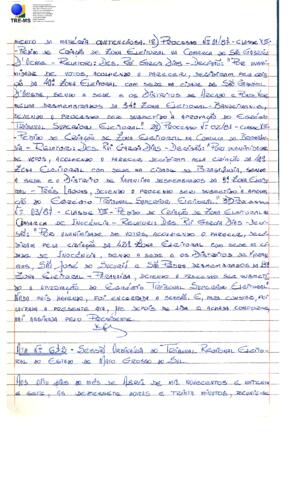 TRE-MS
MENTO DA MATÉRIA CONTENCIOSA. 1) PROCESSO Nº 01/87 - CLASSE VII
- PEDIDO DE CRIAÇÃO DE ZONA ELEITORAL NA COMARCA DE SÃO GABRIEL
D'OESTE - RELATOR: DES. RUI GARCIA DIAS - DECISÃO: "POR UNANI-
MIDADE DE VOTOS, ACOLHENDO O PARECER, DECIDIRAM PELA CRIA-
ÇÃO DA ZONA ELEITORAL COM SEDE NA CIDADE DE SÃO GABRIEL
D'OESTE, SENDO A SEDE E OS DISTRITOS DE
DESMEMBRADOS DA 34ª ZONA ELEITORAL - BANDEIRANTES,
DEVENDO O PROCESSO SER SUBMETIDO À APROVAÇÃO DO EGRÉGIO
TRIBUNAL SUPERIOR ELEITORAL". 2) PROCESSO Nº 02/87 - CLASSE VII
- PEDIDO DE CRIAÇÃO DE ZONA ELEITORAL NA COMARCA DE BRASILÂN-
DIA - RELATOR: DES. RUI GARCIA DIAS - DECISÃO: "POR UNANIMIDADE
DE VOTOS, ACOLHENDO O PARECER, DECIDIRAM PELA CRIAÇÃO DA 41ª
ZONA ELEITORAL COM SEDE NA CIDADE DE BRASILÂNDIA, SENDO
A SEDE E O DISTRITO DE DESMEMBRADOS DA 9ª ZONA ELEI-
TORAL - TRÊS LAGOAS, DEVENDO O PROCESSO SER SUBMETIDO À APROVA-
ÇÃO DO EGRÉGIO TRIBUNAL SUPERIOR ELEITORAL". 3) PROCESSO
Nº 03/87 - CLASSE VII - PEDIDO DE CRIAÇÃO DE ZONA ELEITORAL NA
COMARCA DE INOCÊNCIA - RELATOR: DES. RUI GARCIA DIAS - DECI-
SÃO: "POR UNANIMIDADE DE VOTOS, ACOLHENDO O PARECER, DECI-
DIRAM PELA CRIAÇÃO DA 42ª ZONA ELEITORAL COM SEDE NA CI-
DADE DE INOCÊNCIA, SENDO A SEDE E OS DISTRITOS DE
SÃO JOSÉ DO SUCURIÚ E SÃO PEDRO DESMEMBRADOS DA
ZONA ELEITORAL - PARANAÍBA, DEVENDO O PROCESSO SER SUBMETI-
DO À APROVAÇÃO DO EGRÉGIO TRIBUNAL SUPERIOR ELEITORAL".
NADA MAIS HAVENDO, FOI ENCERRADA A SESSÃO. E, PARA CONSTAR, FOI
LAVRADA A PRESENTE ATA, QUE DEPOIS DE LIDA E ACHADA CONFORME,
VAI ASSINADA PELO PRESIDENTE.
ATA Nº - SESSÃO ORDINÁRIA DO TRIBUNAL REGIONAL ELEITO-
RAL DO ESTADO DE MATO GROSSO DO SUL.
DIAS DO MÊS DE ABRIL DE MIL NOVECENTOS E OITENTA
E SETE, ÀS DEZESSETE HORAS E TRINTA MINUTOS,